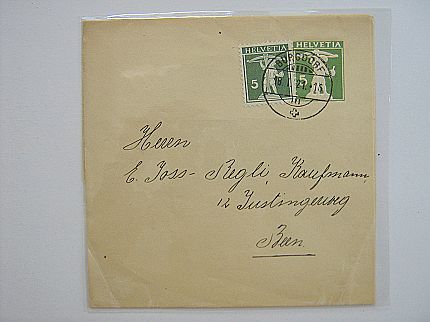 HELVETIA HELVETIA
5 5
BURGDORF
Herren
E. Joss-Regli Kaufmann,
12 Justingerweg
Bern